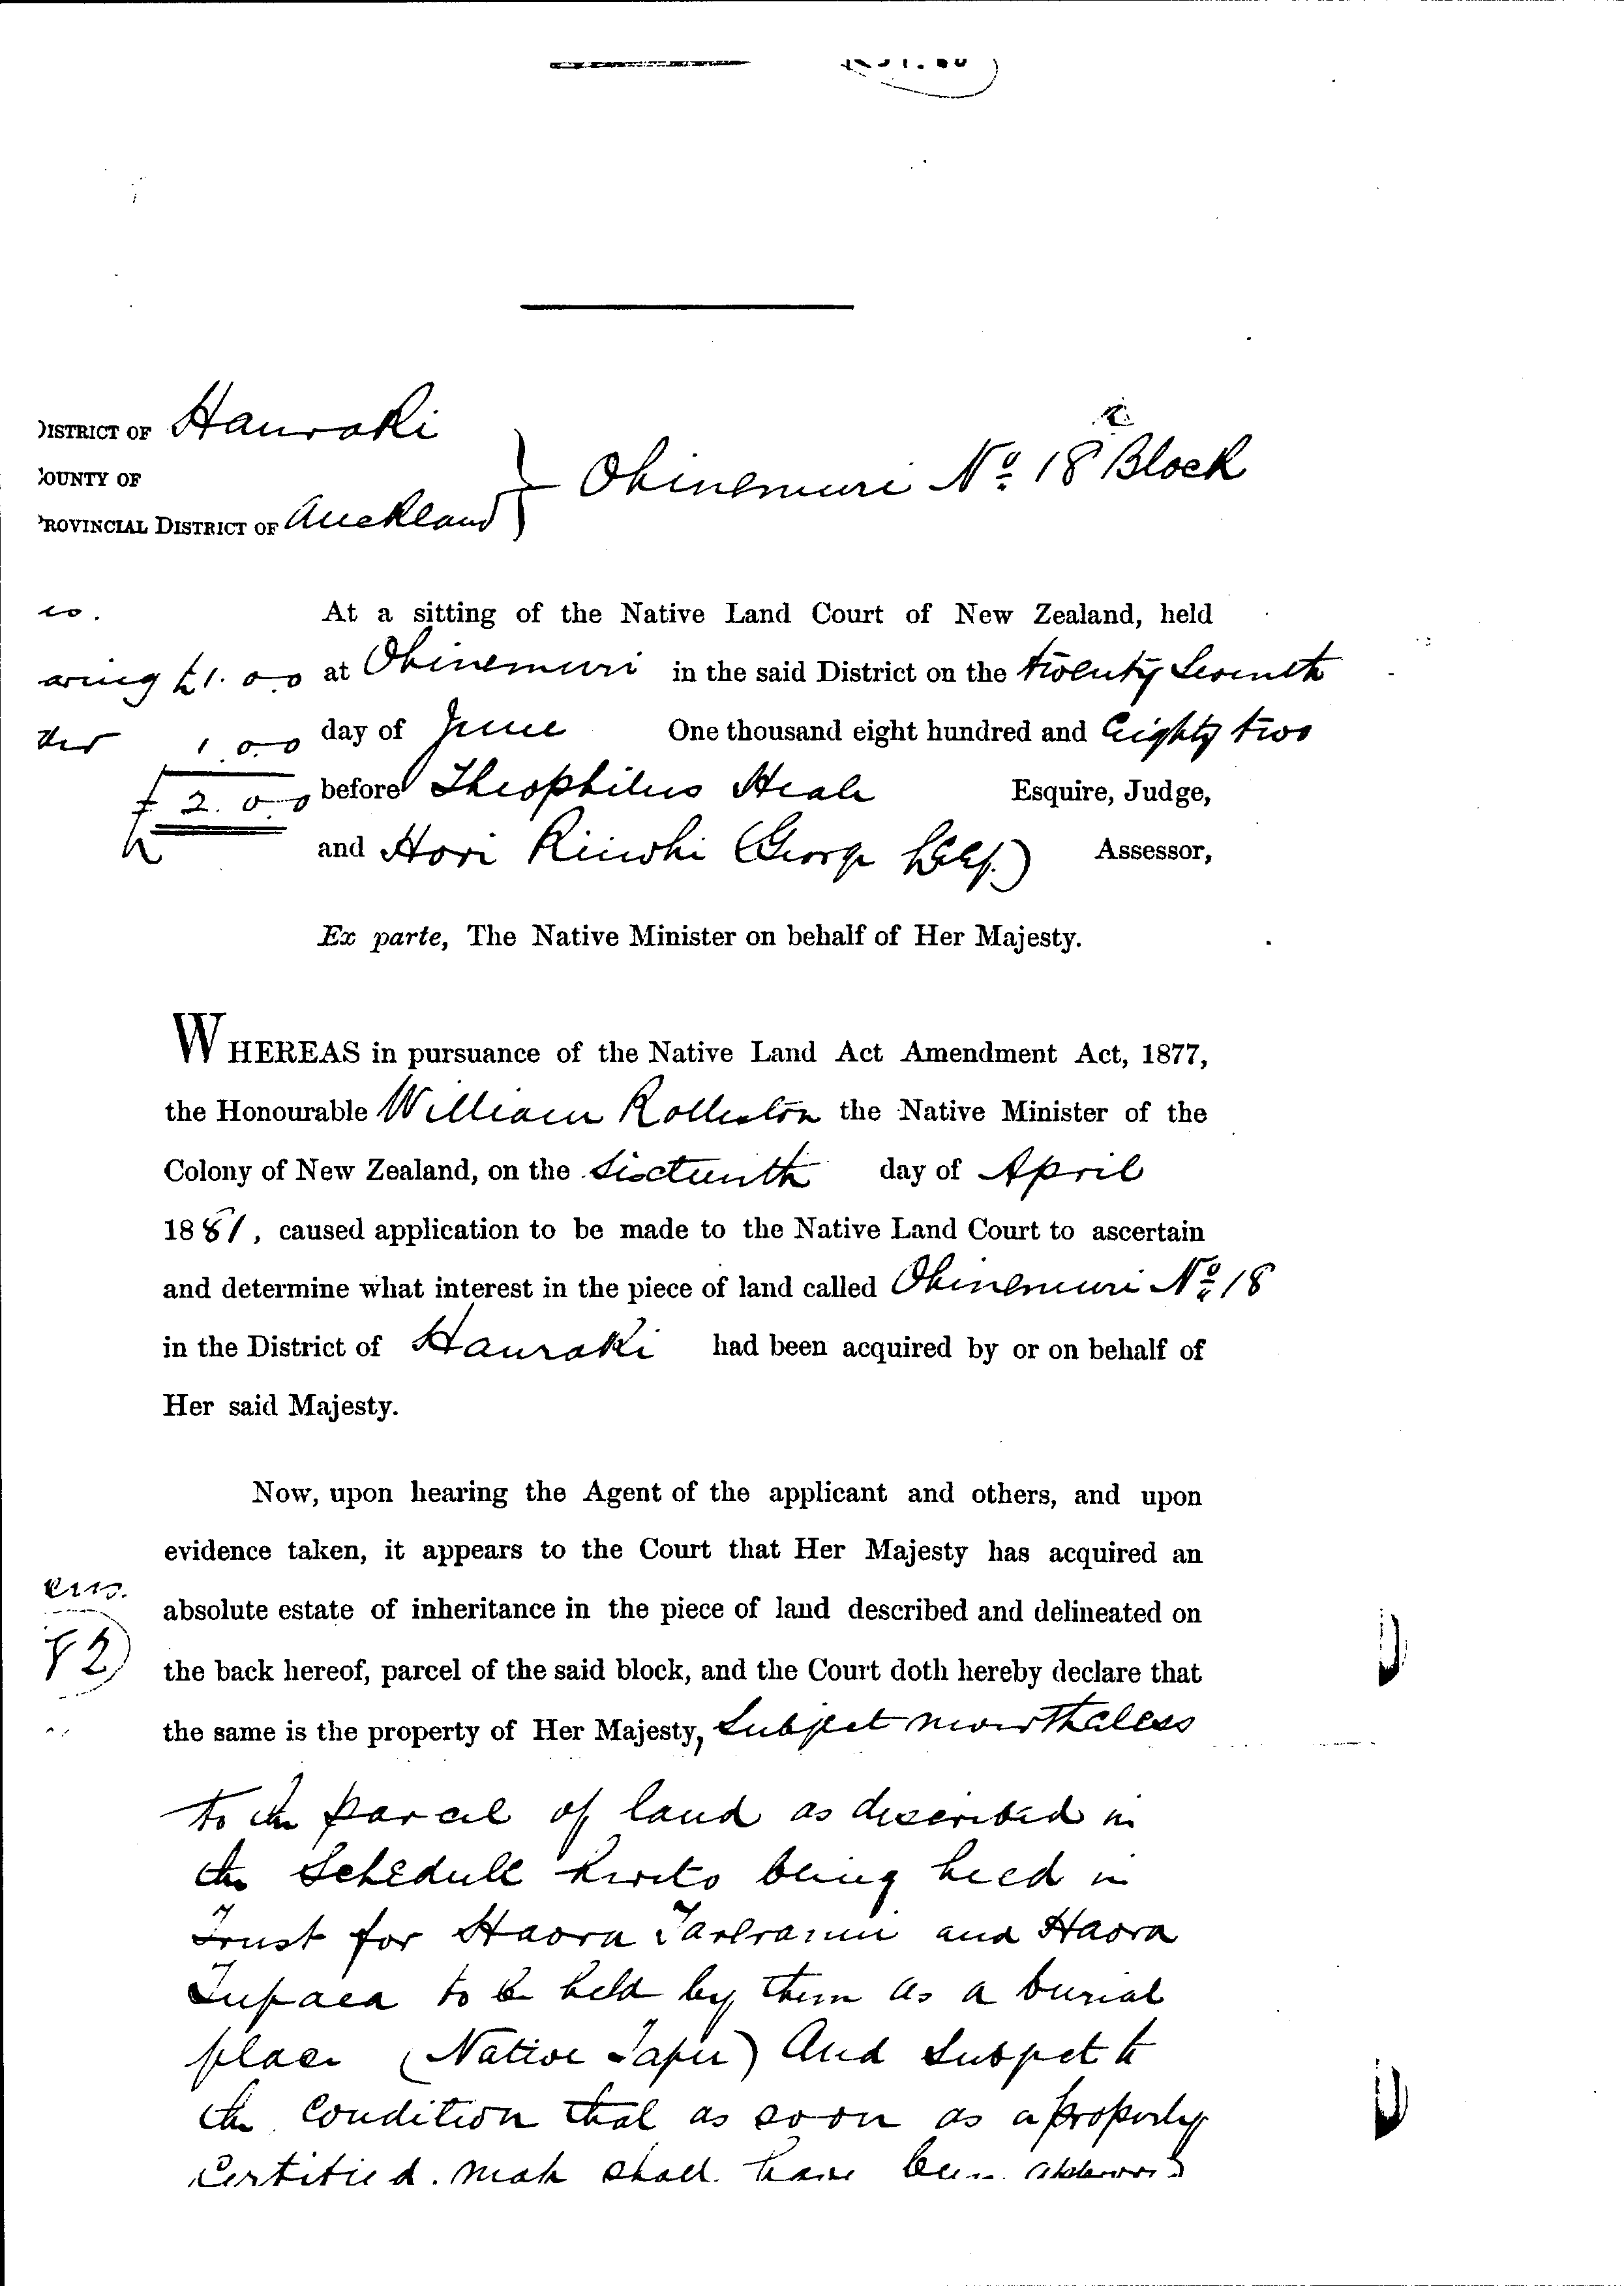 DISTRICT OF Hauraki
COUNTY OF
PROVINCIAL DISTRICT OF Auckland
Ohinemuri No. 18 Block
At a sitting of the Native Land Court of New Zealand, held
aring £1.0.0 at Ohinemuri in the said District on the twenty seventh
der 1.0.0 day of June One thousand eight hundred and Eighty two
£2.0.0 before Theophilus Heale Esquire, Judge,
and Hori Riiwhi (George Assessor,
Ex parte, The Native Minister on behalf of Her Majesty.
WHEREAS in pursuance of the Native Land Act Amendment Act, 1877,
the Honourable William Rolleston the Native Minister of the
Colony of New Zealand, on the Sixteenth day of April
1881, caused application to be made to the Native Land Court to ascertain
and determine what interest in the piece of land called Ohinemuri No. 18
in the District of Hauraki had been acquired by or on behalf of
Her said Majesty.
Now, upon hearing the Agent of the applicant and others, and upon
evidence taken, it appears to the Court that Her Majesty has acquired an
absolute estate of inheritance in the piece of land described and delineated on
82
the back hereof, parcel of the said block, and the Court doth hereby declare that
the same is the property of Her Majesty, Subject nevertheless
to the parcel of land as described in
the Schedule hereto being held in
Trust for Haora Tareranui and Haora
Tupaea to be held by them as a burial
place (Native Tapu) And Subject to
the condition that as soon as a properly
Certified map shall have been approved